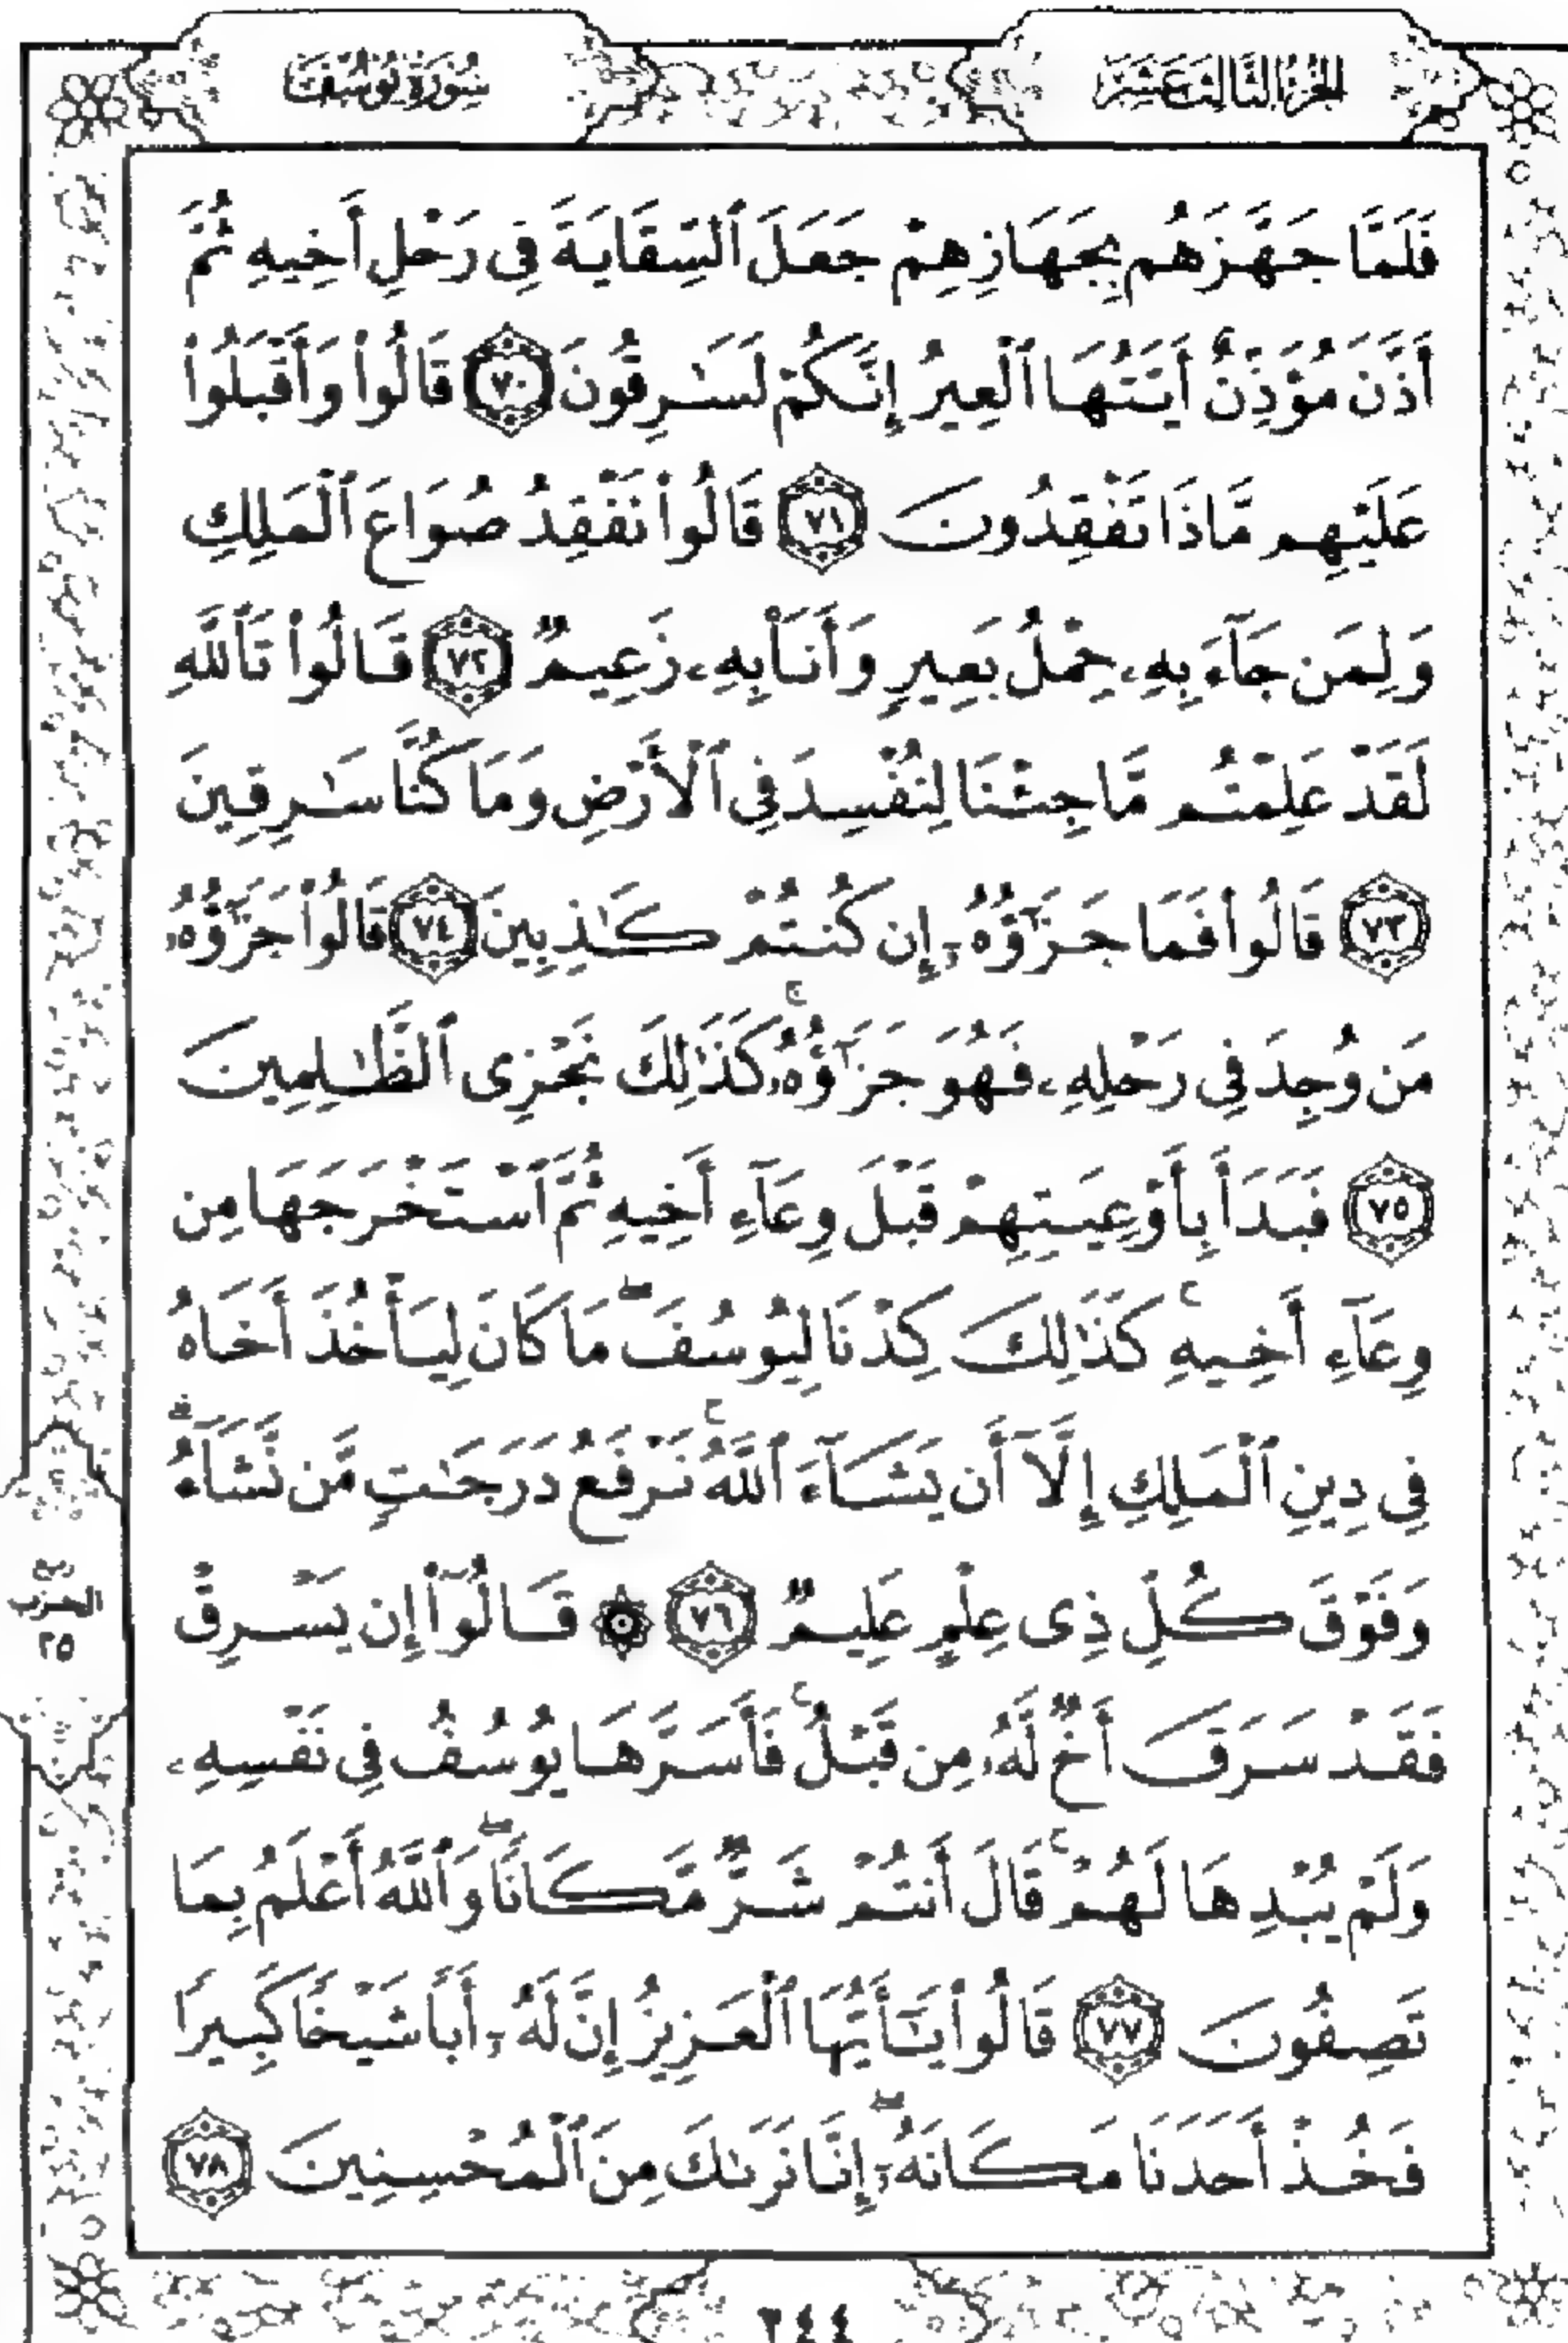 الجزء الثالث عشر
سورة يوسف
فَلَمَّا جَهَّزَهُم بِجَهَازِهِمْ جَعَلَ ٱلسِّقَايَةَ فِى رَحْلِ أَخِيهِ ثُمَّ
أَذَّنَ مُؤَذِّنٌ أَيَّتُهَا ٱلْعِيرُ إِنَّكُمْ لَسَـٰرِقُونَ ٧٠ قَالُوا۟ وَأَقْبَلُوا۟
عَلَيْهِم مَّاذَا تَفْقِدُونَ ٧١ قَالُوا۟ نَفْقِدُ صُوَاعَ ٱلْمَلِكِ
وَلِمَن جَآءَ بِهِۦ حِمْلُ بَعِيرٍ وَأَنَا۠ بِهِۦ زَعِيمٌ ٧٢ قَالُوا۟ تَٱللَّهِ
لَقَدْ عَلِمْتُم مَّا جِئْنَا لِنُفْسِدَ فِى ٱلْأَرْضِ وَمَا كُنَّا سَـٰرِقِينَ
٧٣ قَالُوا۟ فَمَا جَزَٰٓؤُهُۥٓ إِن كُنتُمْ كَـٰذِبِينَ ٧٤ قَالُوا۟ جَزَٰٓؤُهُۥ
مَن وُجِدَ فِى رَحْلِهِۦ فَهُوَ جَزَٰٓؤُهُۥ ۚ كَذَٰلِكَ نَجْزِى ٱلظَّـٰلِمِينَ
٧٥ فَبَدَأَ بِأَوْعِيَتِهِمْ قَبْلَ وِعَآءِ أَخِيهِ ثُمَّ ٱسْتَخْرَجَهَا مِن
وِعَآءِ أَخِيهِ ۚ كَذَٰلِكَ كِدْنَا لِيُوسُفَ ۖ مَا كَانَ لِيَأْخُذَ أَخَاهُ
فِى دِينِ ٱلْمَلِكِ إِلَّآ أَن يَشَآءَ ٱللَّهُ ۚ نَرْفَعُ دَرَجَـٰتٍ مَّن نَّشَآءُ ۗ
وَفَوْقَ كُلِّ ذِى عِلْمٍ عَلِيمٌ ٧٦ ۞ قَالُوٓا۟ إِن يَسْرِقْ
فَقَدْ سَرَقَ أَخٌ لَّهُۥ مِن قَبْلُ ۚ فَأَسَرَّهَا يُوسُفُ فِى نَفْسِهِۦ
وَلَمْ يُبْدِهَا لَهُمْ ۚ قَالَ أَنتُمْ شَرٌّ مَّكَانًا ۖ وَٱللَّهُ أَعْلَمُ بِمَا
تَصِفُونَ ٧٧ قَالُوا۟ يَـٰٓأَيُّهَا ٱلْعَزِيزُ إِنَّ لَهُۥٓ أَبًا شَيْخًا كَبِيرًا
فَخُذْ أَحَدَنَا مَكَانَهُۥٓ ۖ إِنَّا نَرَىٰكَ مِنَ ٱلْمُحْسِنِينَ ٧٨
الحزب
٢٥
٢٤٤